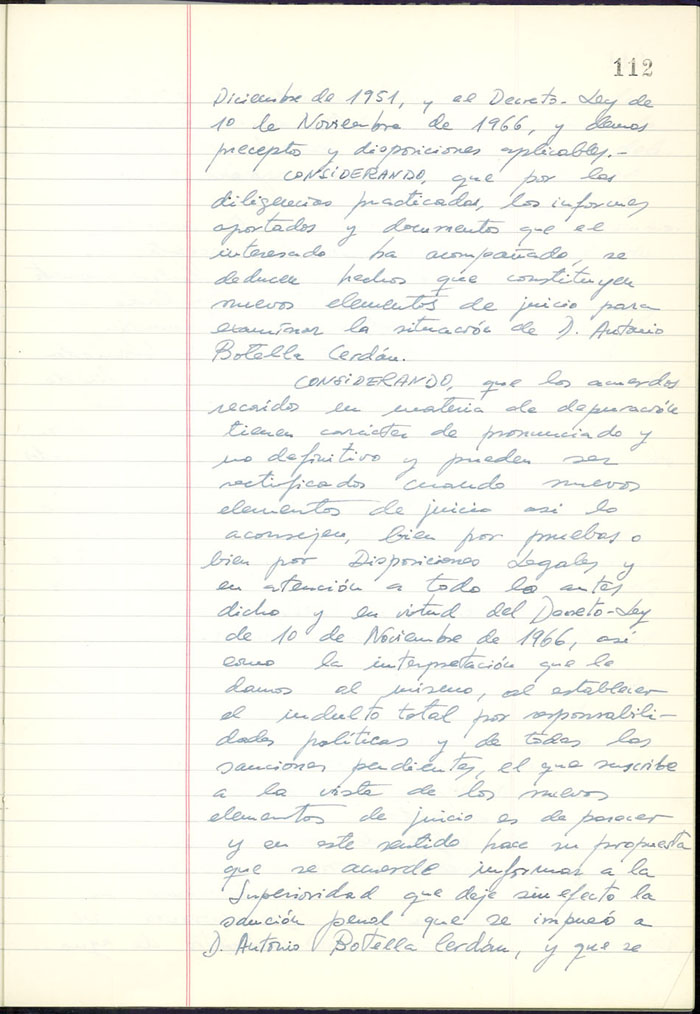 112
Diciembre de 1951, y el Decreto-Ley de
10 de Noviembre de 1966, y demas
precepto y disposiciones aplicables.-
CONSIDERANDO, que por las
diligencias practicadas, los informes
aportados y documento que el
interesado ha acompañado, se
deducen hechos que constituyen
nuevos elementos de juicio para
examinar la situación de D. Antonio
Botella Cerdán.
CONSIDERANDO, que los acuerdos
recaidos en materia de depuración
tienen carácter de pronunciado y
no definitivo y pueden ser
rectificados cuando nuevos
elementos de juicio asi lo
aconsejen, bien por pruebas o
bien por Disposiciones Legales y
en atención a todo lo antes
dicho y en virtud del Decreto-Ley
de 10 de Noviembre de 1966, asi
como la interpretación que le
damos al mismo, al establecer
el indulto total por responsabili-
dades politicas y de todas las
sanciones pendientes, el que suscribe
a la vista de los nuevos
elementos de juicio es de parecer
y en este sentido hace su propuesta
que se acuerde informar a la
Superioridad que deje sin efecto la
sanción penal que se impuso a
D. Antonio Botella Cerdán, y que se